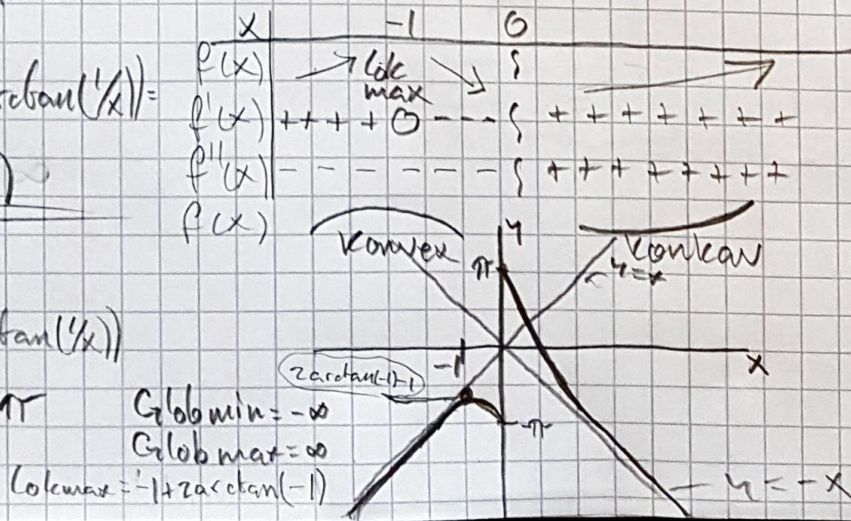 x -1 0
f(x) → lok max ↘ { →
rctan(1/x))=
f'(x) ++++0---{ + + + + + + +
f''(x) - - - - - - { + + + + + + +
f(x)
Konvex
Konkav
y
π
y=x
tan(1/x))
x
-1
2arctan(-1)-1
π
Glob min = -∞
-π
Glob max = ∞
lokmax = -1+2arctan(-1)
y = -x